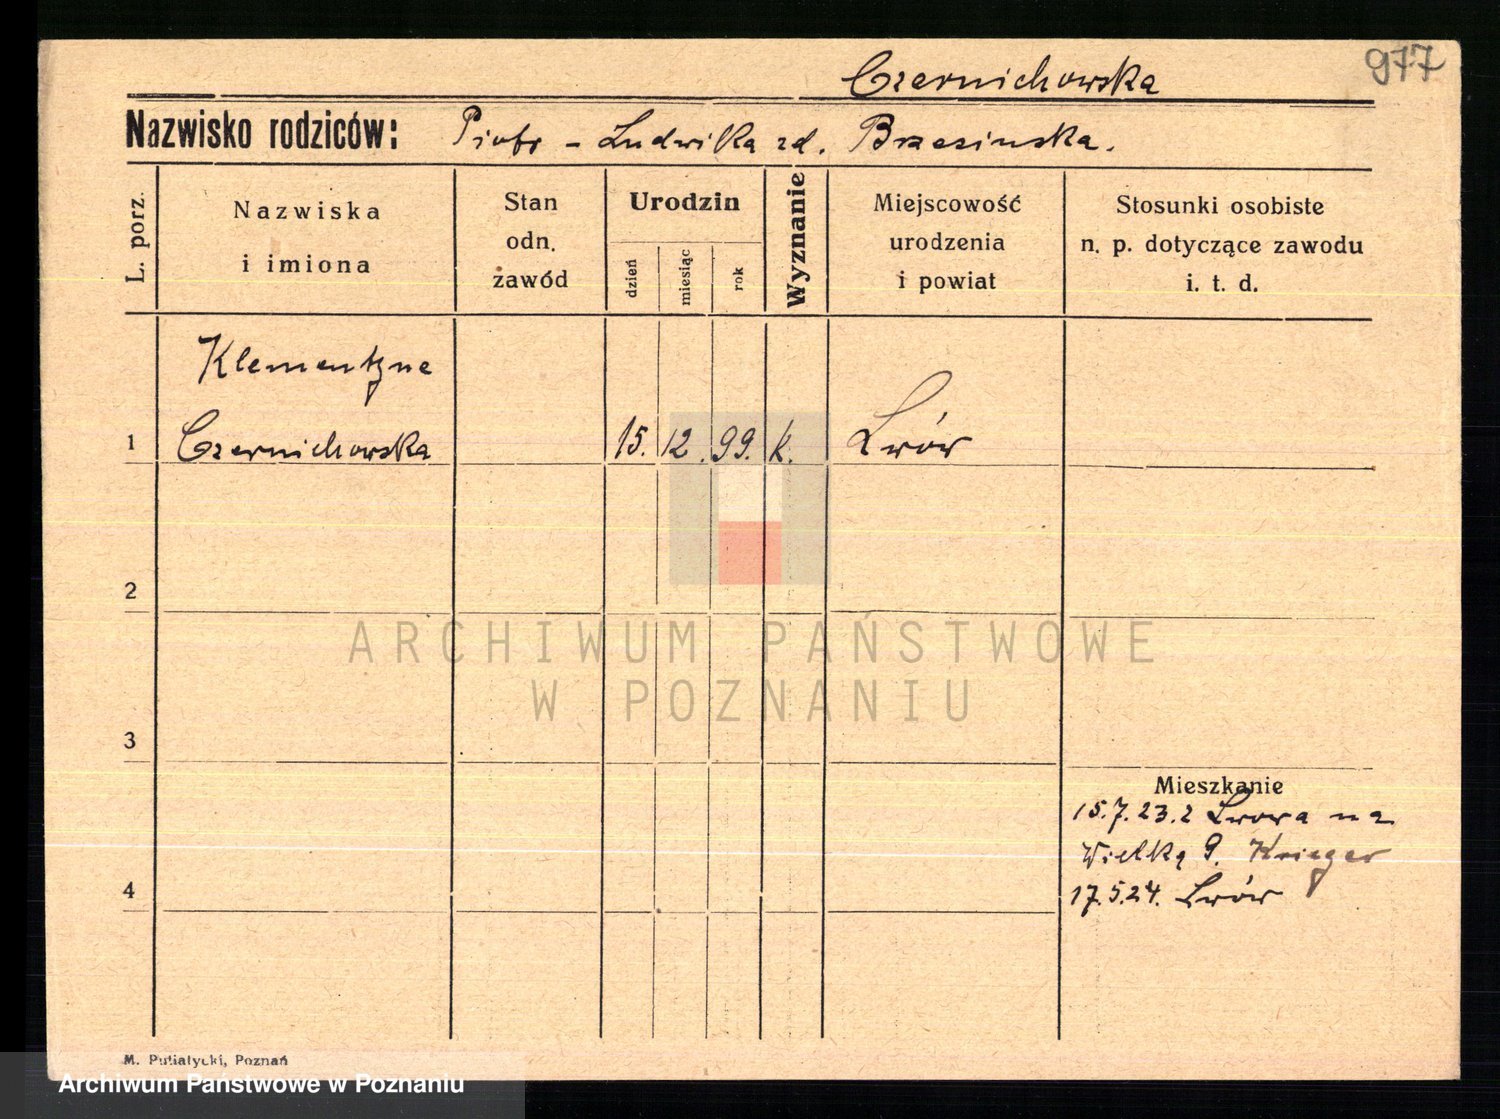 Czernichowska
977
Nazwisko rodziców: Piotr - Ludwika zd. Brzesinska.
L. porz.
Nazwiska
i imiona
Stan
odn.
zawód
Urodzin
dzień
miesiąc
rok
Wyznanie
Miejscowość
urodzenia
i powiat
Stosunki osobiste
n. p. dotyczące zawodu
i. t. d.
Klementyne
1 Czernichowska 15. 12. 99. k. Lwów
2
ARCHIWUM PAŃSTWOWE
W POZNANIU
3
Mieszkanie
15.7.23. z Lwowa na
Wielką 9. Krieger
4
17.5.24. Lwów
M. Putiatycki, Poznań
Archiwum Państwowe w Poznaniu